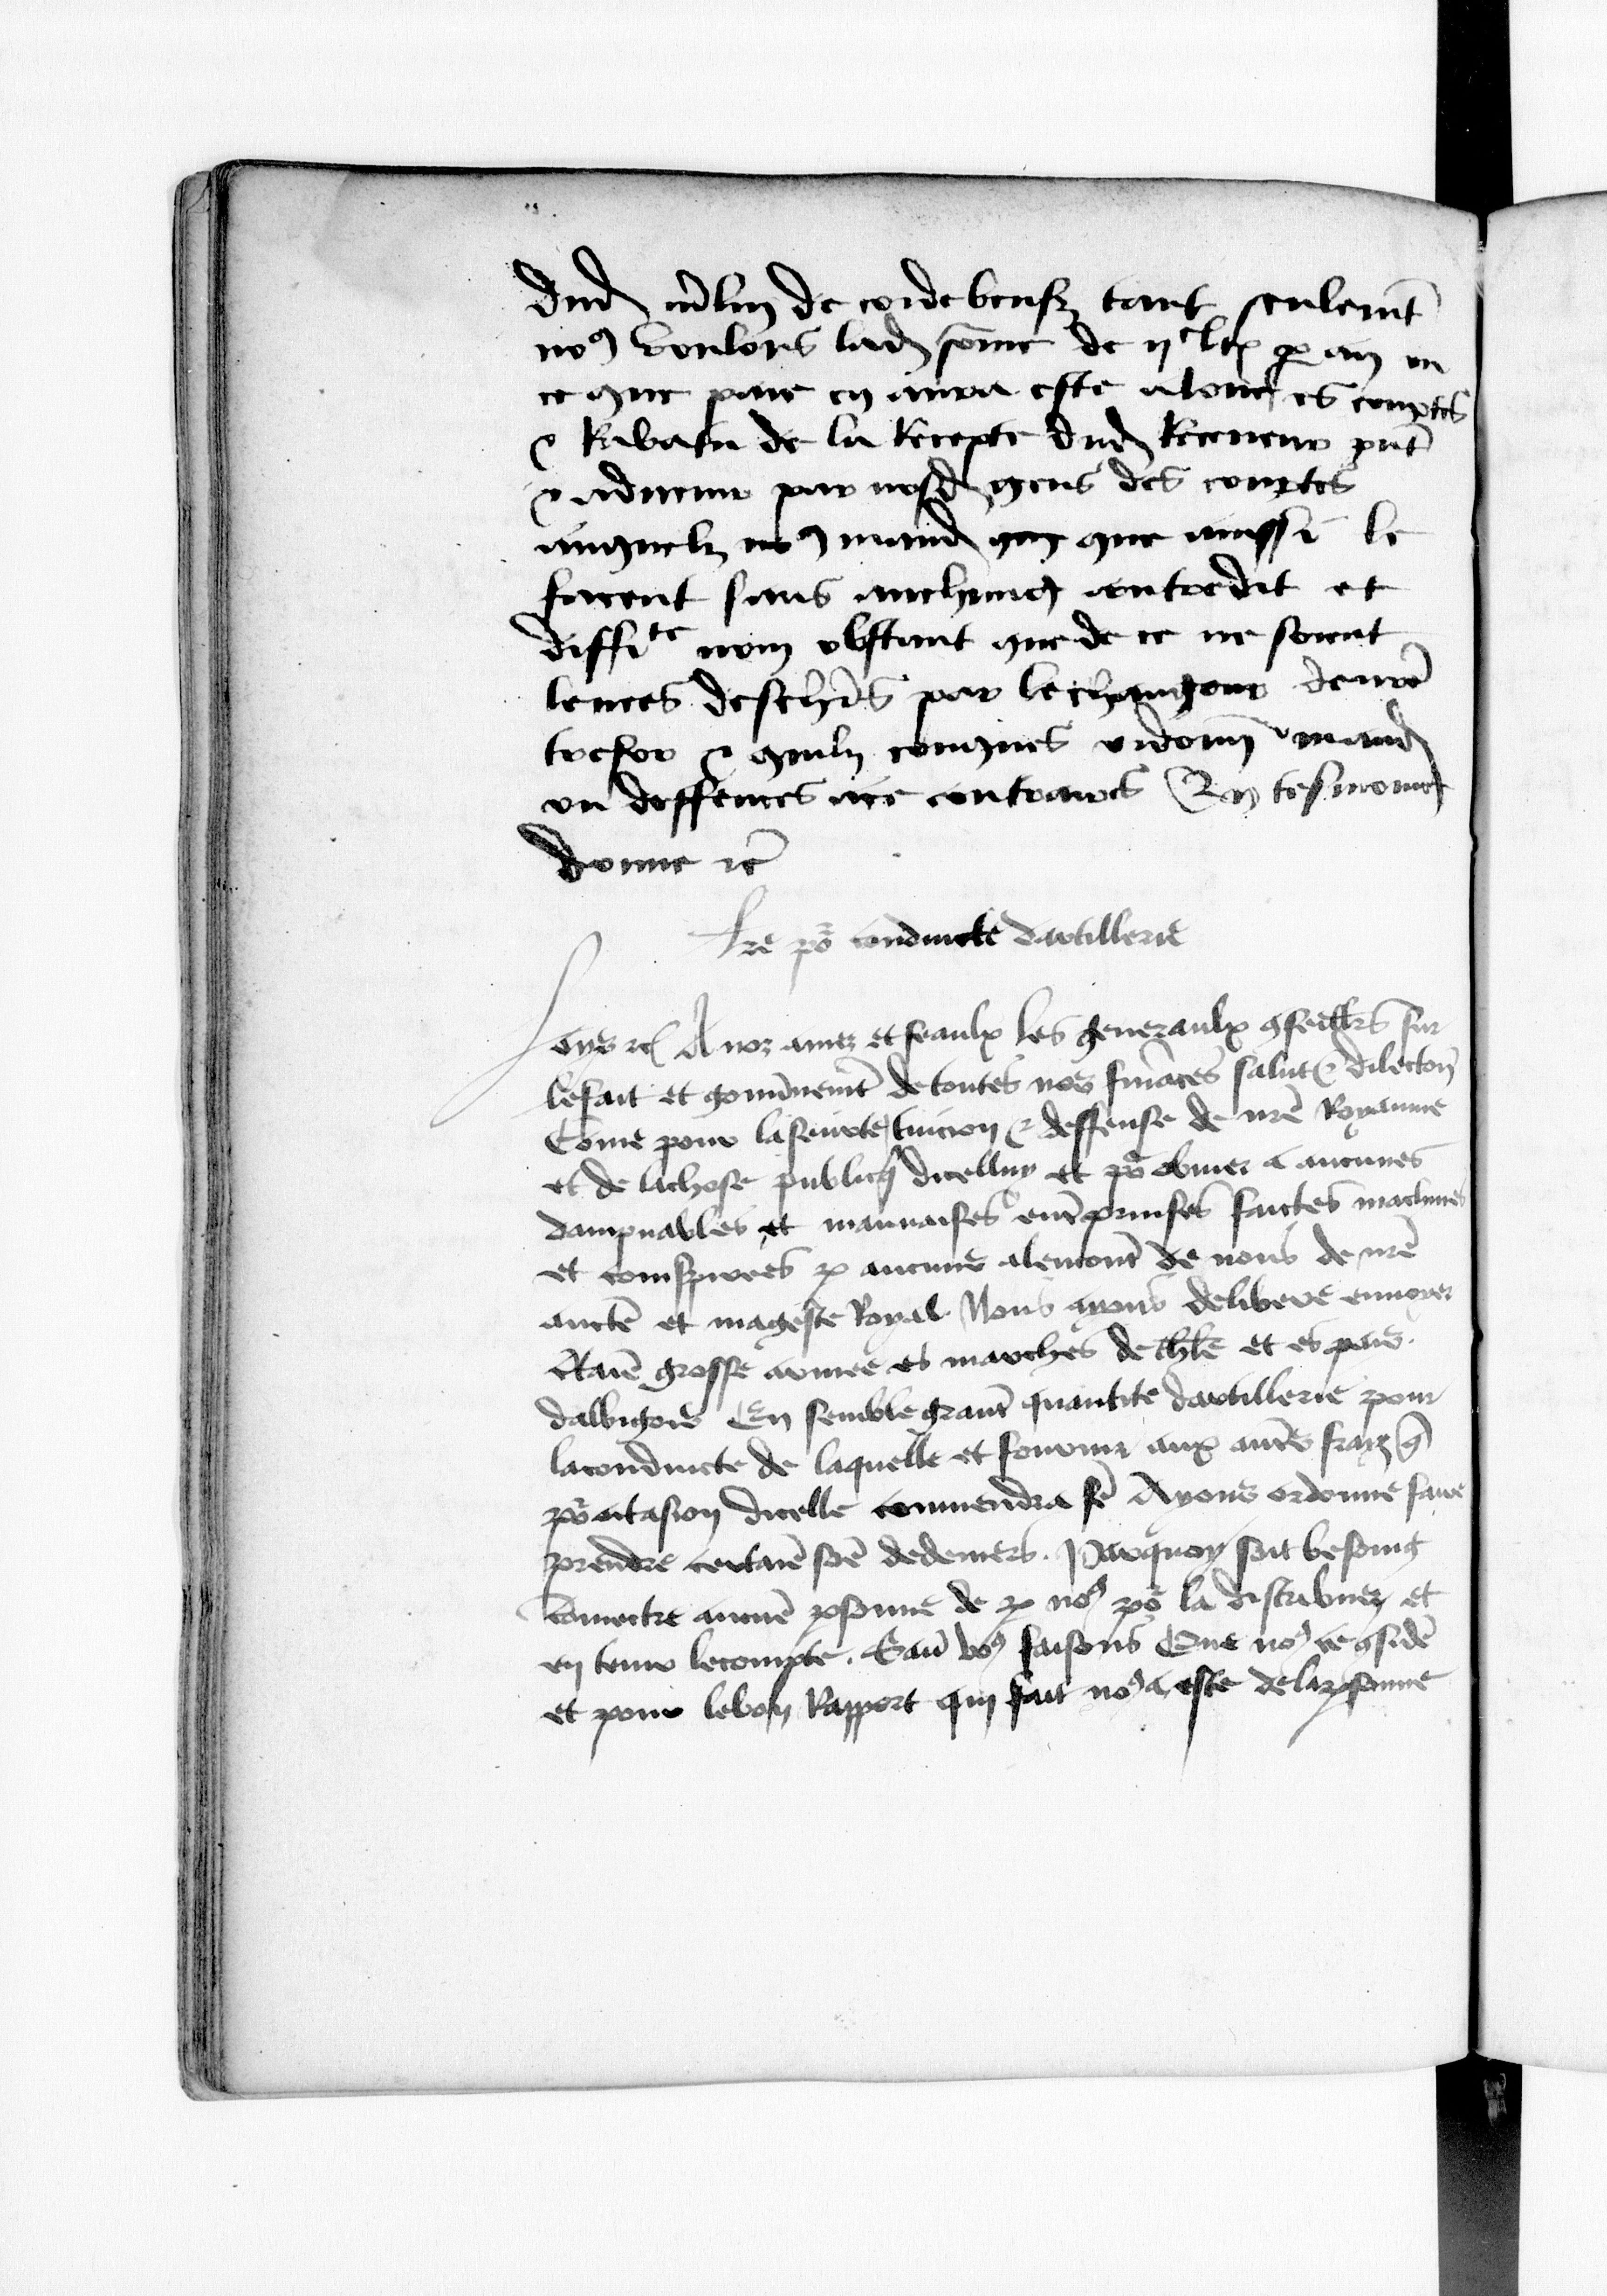 dud merlin de cordebeuf tant seulemt
nos voulons lad some de IIc l tz p an ou
ce que paie en aura este aloue es comptes
& Rabatu de la Recepte dud Receveur pnt
& advenir par nosd gens des comptes
ausquelz nos mand que ainssi le
facent sans auchung contredit et
diffite non obstant que de ce ne soient
levees deschrs par le changeur de nre
tresor & quelzconques ordonn mand
ou deffences a ce contraires En tesmong
donne etc
Lre po conduicte dartillerie
Loys etc A noz amez et feaulx les generaulx gseillrs sur
le fait et gouvnemt de toutes noz finaces salut & dilecton
Come pour la seurte tuicion & deffense de nre Royaume
et de la chose publicq dicelluy et po obvier a aucunes
dampnables et mauvaises entprinses faictes machinees
et conspirees p aucuns alencont de nous de nre
aucte et mageste Royal Nous ayons delibere envoyer
ctaie grosse armee es marches de et es pais
dalbigois En semble grant quantite dartillerie pour
la conduicte de laquelle et fournir aux autres fraiz q
po ocasion dicelle conviendra fe Ayons ordonne faire
prendre certaie soe de deniers. Parquoy soit besoing
commectre aucune psonne de p nos po la distribuer et
en tenir le compte. Savr vos faisons Que nos ce gside
et pour le bon Rapport qui fait nos a este de la psonne